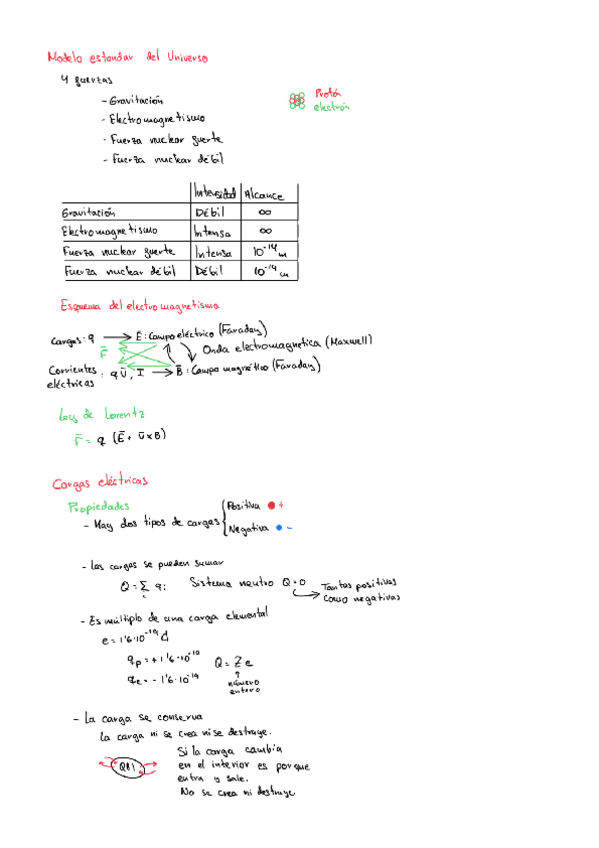 Modelo estandar del Universo
4 fuerzas
- Gravitación
- Electromagnetismo
- Fuerza nuclear fuerte
- Fuerza nuclear débil
Protón
electrón
Intensidad Alcance
Gravitación Débil ∞
Electromagnetismo Intensa ∞
Fuerza nuclear fuerte Intensa 10⁻¹⁴ m
Fuerza nuclear débil Débil 10⁻¹⁴ m
Esquema del electromagnetismo
Cargas: q → E: Campo eléctrico (Faraday)
F̄
Onda electromagnetica (Maxwell)
Corrientes eléctricas : q ū, I → B̄: Campo magnético (Faraday)
Ley de Lorentz
F̄ = q (Ē + ū x B)
Cargas eléctricas
Propiedades
- Hay dos tipos de cargas { Positiva +
Negativa -
- Las cargas se pueden sumar
Q = Σ qi Sistema neutro Q=0 → Tantas positivas
i como negativas
- Es múltiplo de una carga elemental
e = 1'6·10⁻¹⁹ C
qp = +1'6·10⁻¹⁹ Q = Z e
qe = -1'6·10⁻¹⁹ número
entero
- La carga se conserva
La carga ni se crea ni se destruye.
Si la carga cambia
en el interior es porque
entra y sale.
No se crea ni destruye